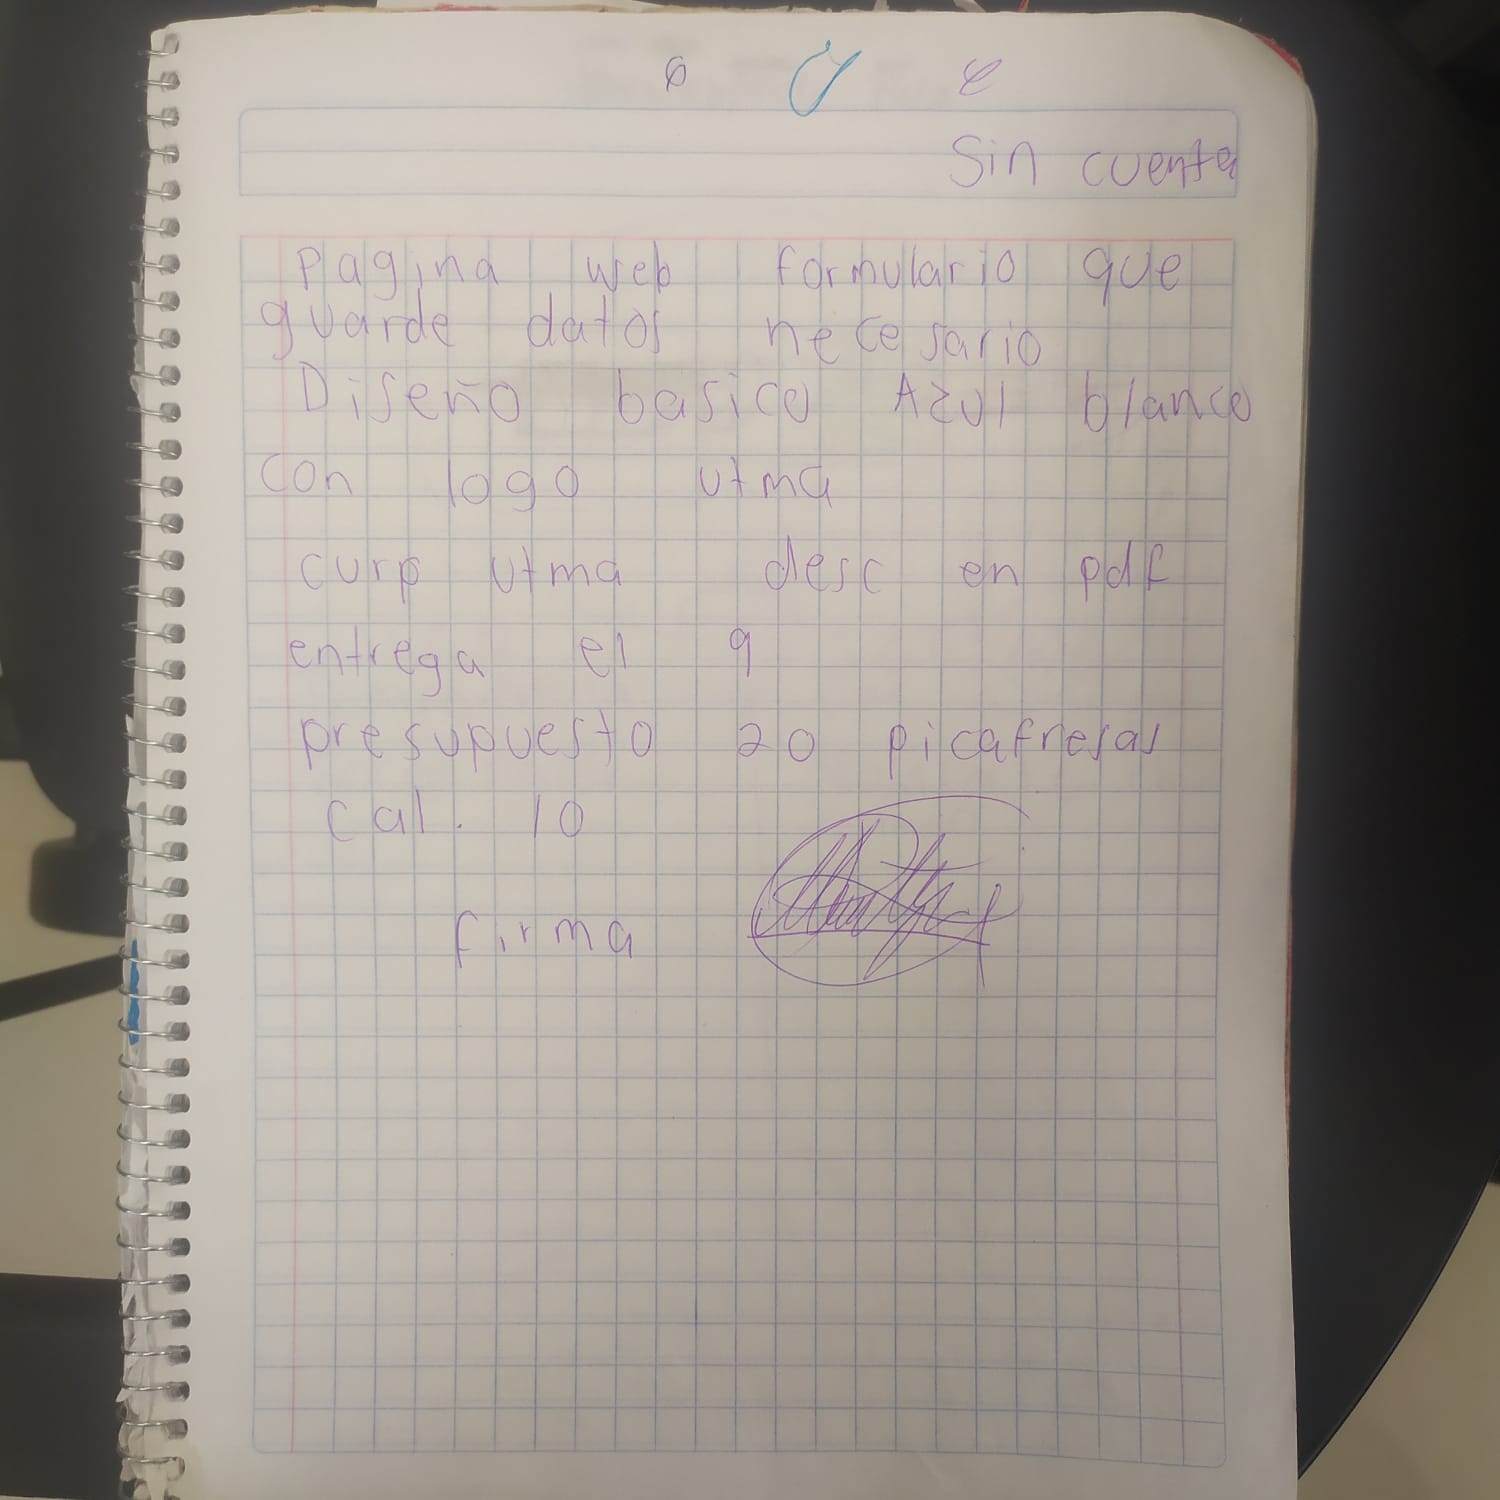 Sin cuenta
pagina web formulario que
guarde datos necesario
Diseño basico Azul blanco
con logo utma
curp utma desc en pdf
entrega el 9
presupuesto 20 picafresas
cal. 10
firma